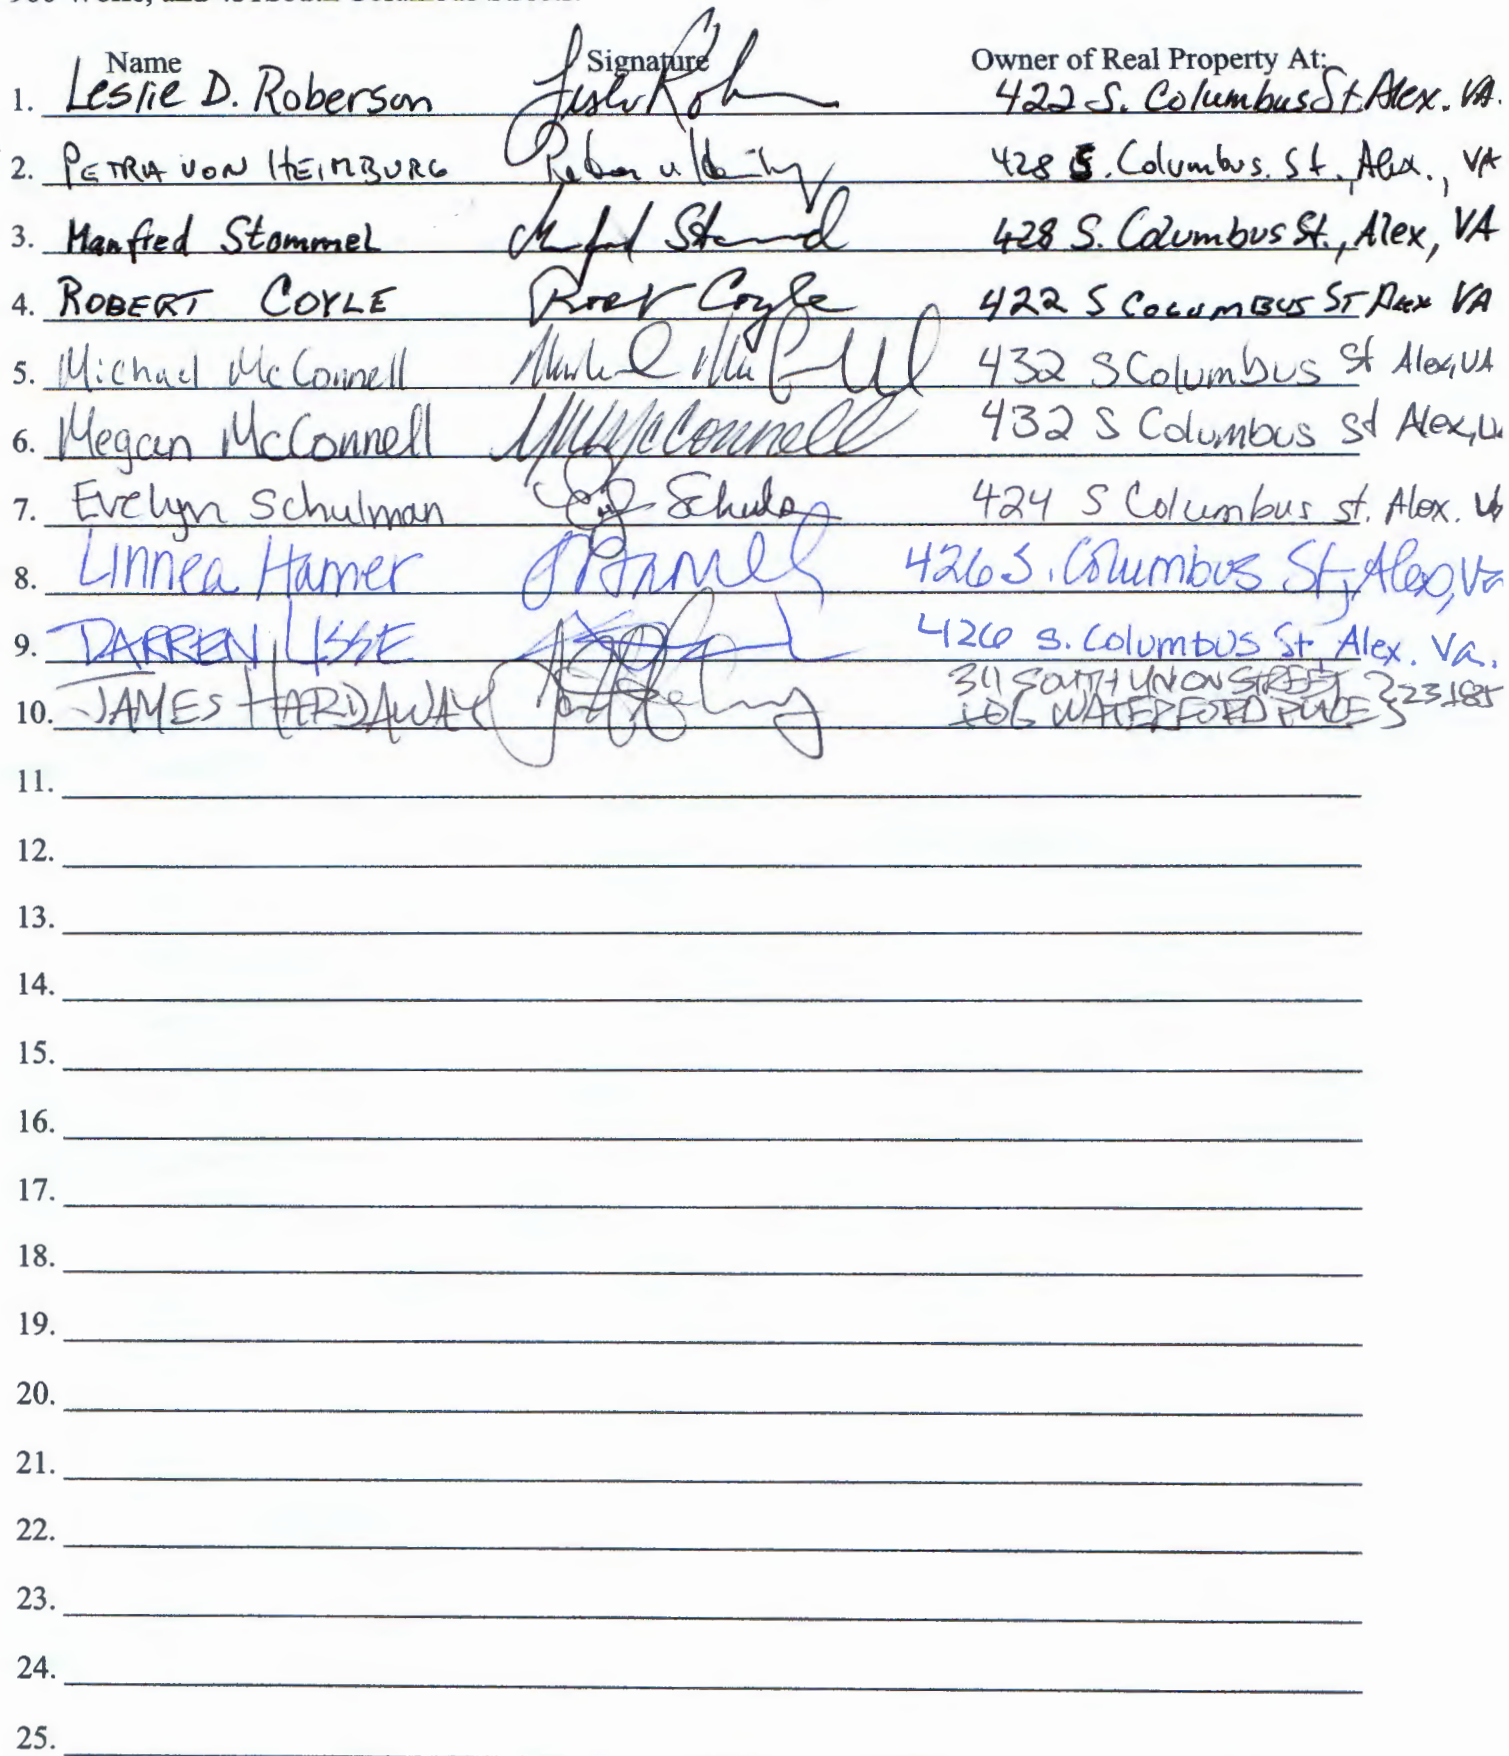 Name Signature Owner of Real Property At:
1. Leslie D. Roberson 422 S. Columbus St. Alex. VA.
2. PETRA VON HEIMBURG 428 S. Columbus. St., Alex., VA
3. Manfred Stommel 428 S. Columbus St., Alex, VA
4. ROBERT COYLE Robert Coyle 422 S COLUMBUS ST Alex VA
5. Michael McConnell 432 S Columbus St Alex, VA
6. Megan McConnell McConnell 432 S Columbus St Alex,
7. Evelyn Schulman 424 S Columbus st. Alex. Va
8. Linnea Hamer 426 S. Columbus St, Alex, Va
9. DARREN LISSE 426 S. Columbus St Alex. Va.
10. JAMES HARDAWAY 311 SOUTH UNION STREET
106 WATERFORD PLACE } 23185
11.
12.
13.
14.
15.
16.
17.
18.
19.
20.
21.
22.
23.
24.
25.